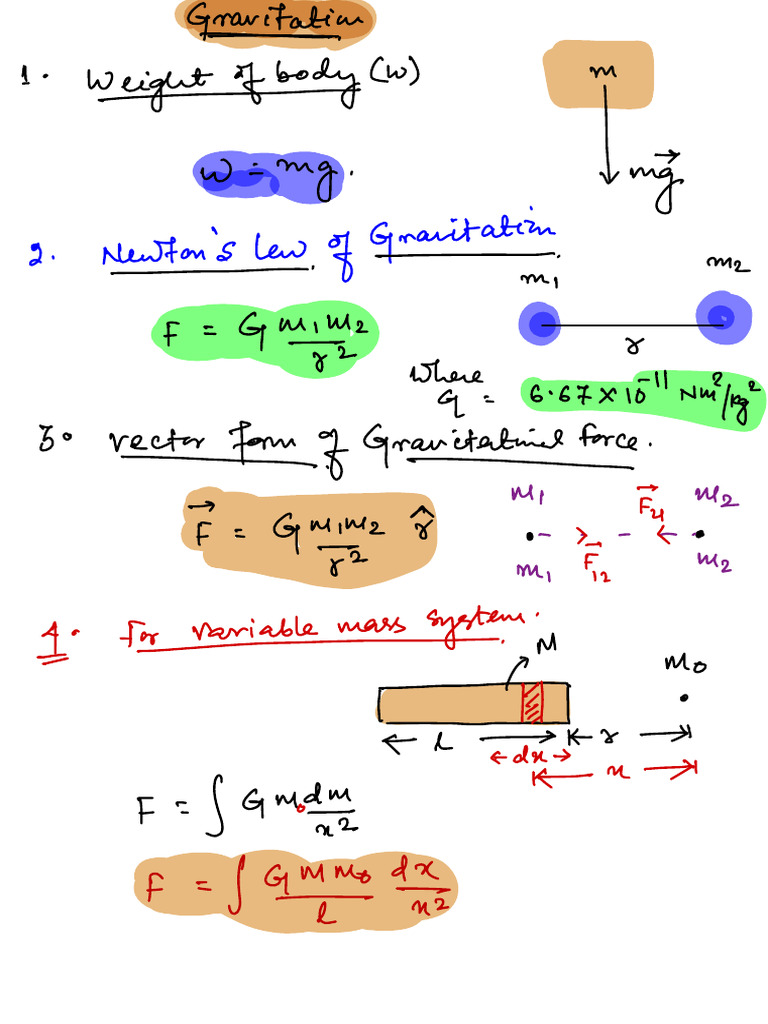 Gravitation
1. Weight of body (W)
m
W = mg.
mg⃗
2. Newton's Law of Gravitation
m₁ m₂
F = G m₁m₂ / r²
r
Where
G = 6.67 × 10⁻¹¹ Nm²/kg²
3. vector form of Gravitational force.
F⃗ = G m₁m₂ / r² r̂
m₁ F⃗₂₁ m₂
m₁ F⃗₁₂ m₂
4. For variable mass system.
M
m₀
l r
dx
x
F = ∫ G m₀ dm / x²
F = ∫ G M m₀ / l dx / x²